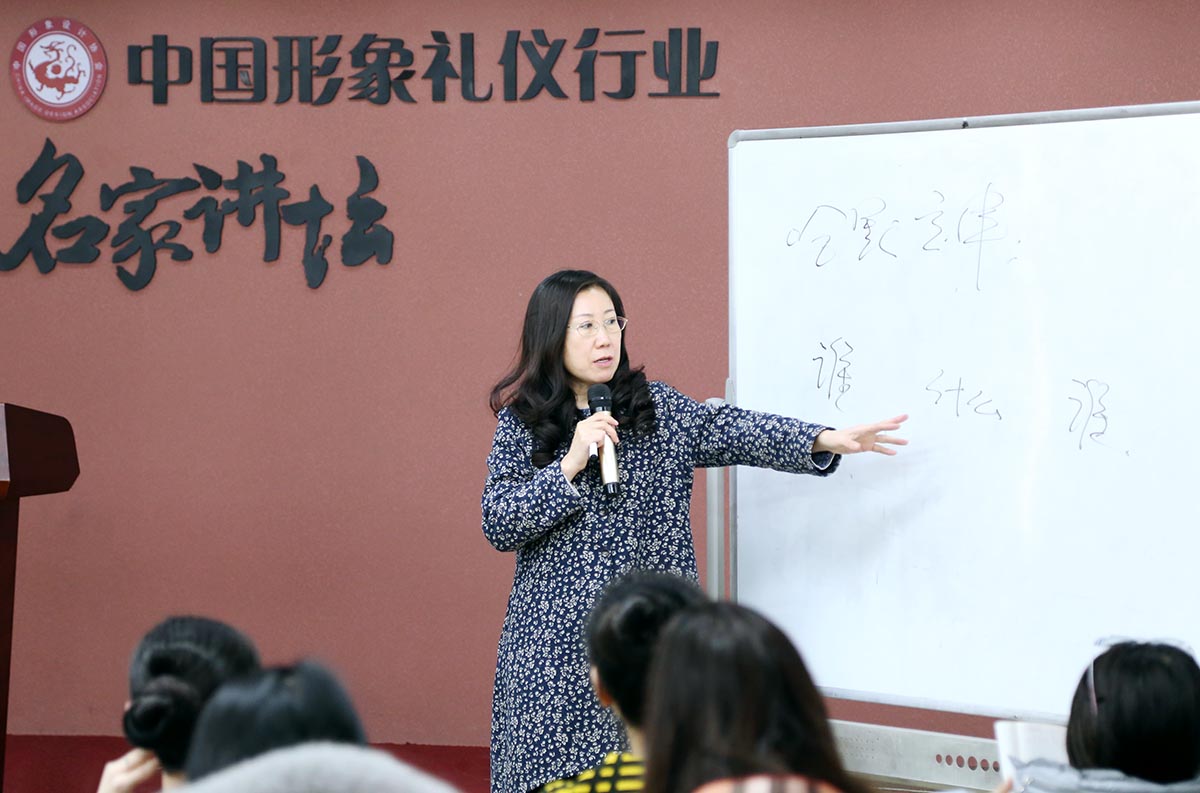 中国形象设计协会
CHINA IMAGE DESIGN ASSOCIATION
中国形象礼仪行业
名家讲坛
谁 什么 谁